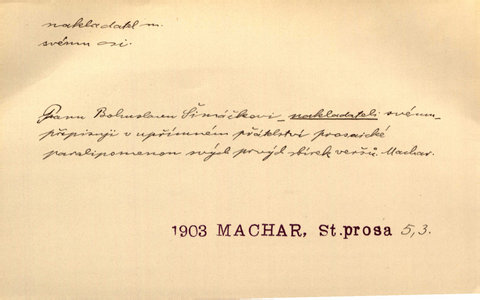 nakladatel m.
svému osi.
Panu Bohuslavu Šimáčkovi – nakladateli svému –
připisuji v upřímném přátelství prosaické
paralipomenon svých prvých sbírek veršů Machar.
1903 MACHAR, St.prosa 5,3.